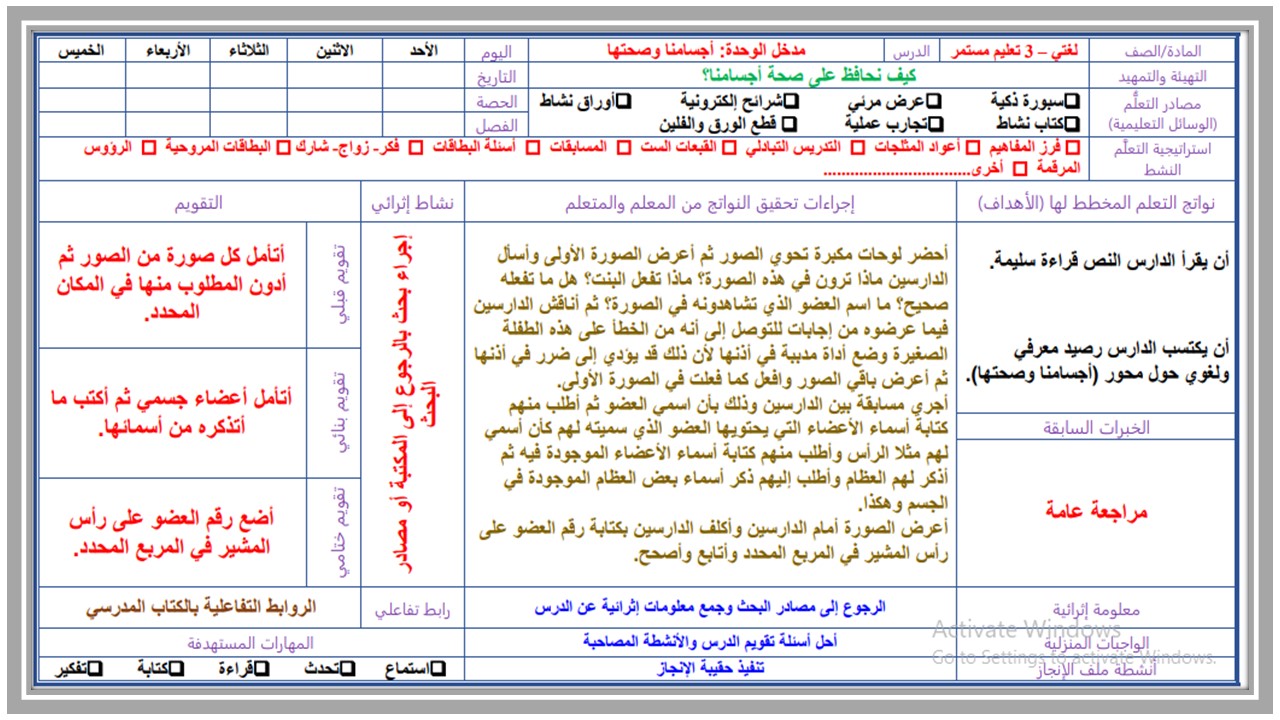 المادة/الصف
لغتي – 3 تعليم مستمر
الدرس
مدخل الوحدة: أجسامنا وصحتها
اليوم
الأحد
الاثنين
الثلاثاء
الأربعاء
الخميس
التهيئة والتمهيد
كيف نحافظ على صحة أجسامنا؟
التاريخ
مصادر التعلُّم
(الوسائل التعليمية)
❑سبورة ذكية ❑عرض مرئي ❑شرائح إلكترونية ❑أوراق نشاط
❑كتاب نشاط ❑تجارب عملية ❑ قطع الورق والفلين
الحصة
الفصل
استراتيجية التعلَّم
النشط
□ فرز المفاهيم □ أعواد المثلجات □ التدريس التبادلي □ القبعات الست □ المسابقات □ أسئلة البطاقات □ فكر- زواج- شارك □ البطاقات المروحية □ الرؤوس
المرقمة □ أخرى.................................
نواتج التعلم المخطط لها (الأهداف)
إجراءات تحقيق النواتج من المعلم والمتعلم
نشاط إثرائي
التقويم
أن يقرأ الدارس النص قراءة سليمة.
أن يكتسب الدارس رصيد معرفي
ولغوي حول محور (أجسامنا وصحتها).
الخبرات السابقة
مراجعة عامة
أحضر لوحات مكبرة تحوي الصور ثم أعرض الصورة الأولى وأسأل
الدارسين ماذا ترون في هذه الصورة؟ ماذا تفعل البنت؟ هل ما تفعله
صحيح؟ ما اسم العضو الذي تشاهدونه في الصورة؟ ثم أناقش الدارسين
فيما عرضوه من إجابات للتوصل إلى أنه من الخطأ على هذه الطفلة
الصغيرة وضع أداة مدببة في أذنها لأن ذلك قد يؤدي إلى ضرر في أذنها
ثم أعرض باقي الصور وافعل كما فعلت في الصورة الأولى.
أجري مسابقة بين الدارسين وذلك بأن اسمي العضو ثم أطلب منهم
كتابة أسماء الأعضاء التي يحتويها العضو الذي سميته لهم كأن أسمي
لهم مثلا الرأس وأطلب منهم كتابة أسماء الأعضاء الموجودة فيه ثم
أذكر لهم العظام وأطلب إليهم ذكر أسماء بعض العظام الموجودة في
الجسم وهكذا.
أعرض الصورة أمام الدارسين وأكلف الدارسين بكتابة رقم العضو على
رأس المشير في المربع المحدد وأتابع وأصحح.
إجراء بحث بالرجوع إلى المكتبة أو مصادر
البحث
تقويم قبلي
أتأمل كل صورة من الصور ثم
أدون المطلوب منها في المكان
المحدد.
تقويم بنائي
أتأمل أعضاء جسمي ثم أكتب ما
أتذكره من أسمائها.
تقويم ختامي
أضع رقم العضو على رأس
المشير في المربع المحدد.
معلومة إثرائية
الرجوع إلى مصادر البحث وجمع معلومات إثرائية عن الدرس
رابط تفاعلي
الروابط التفاعلية بالكتاب المدرسي
الواجبات المنزلية
أحل أسئلة تقويم الدرس والأنشطة المصاحبة
المهارات المستهدفة
أنشطة ملف الإنجاز
تنفيذ حقيبة الإنجاز
❑استماع ❑تحدث ❑قراءة ❑كتابة ❑تفكير
Activate Windows
Go to Settings to activate Windows.